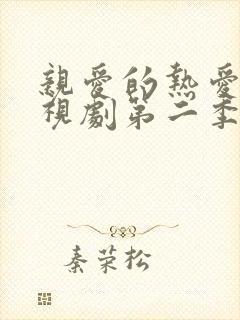 親愛的熱愛
視劇第二季
秦荣松